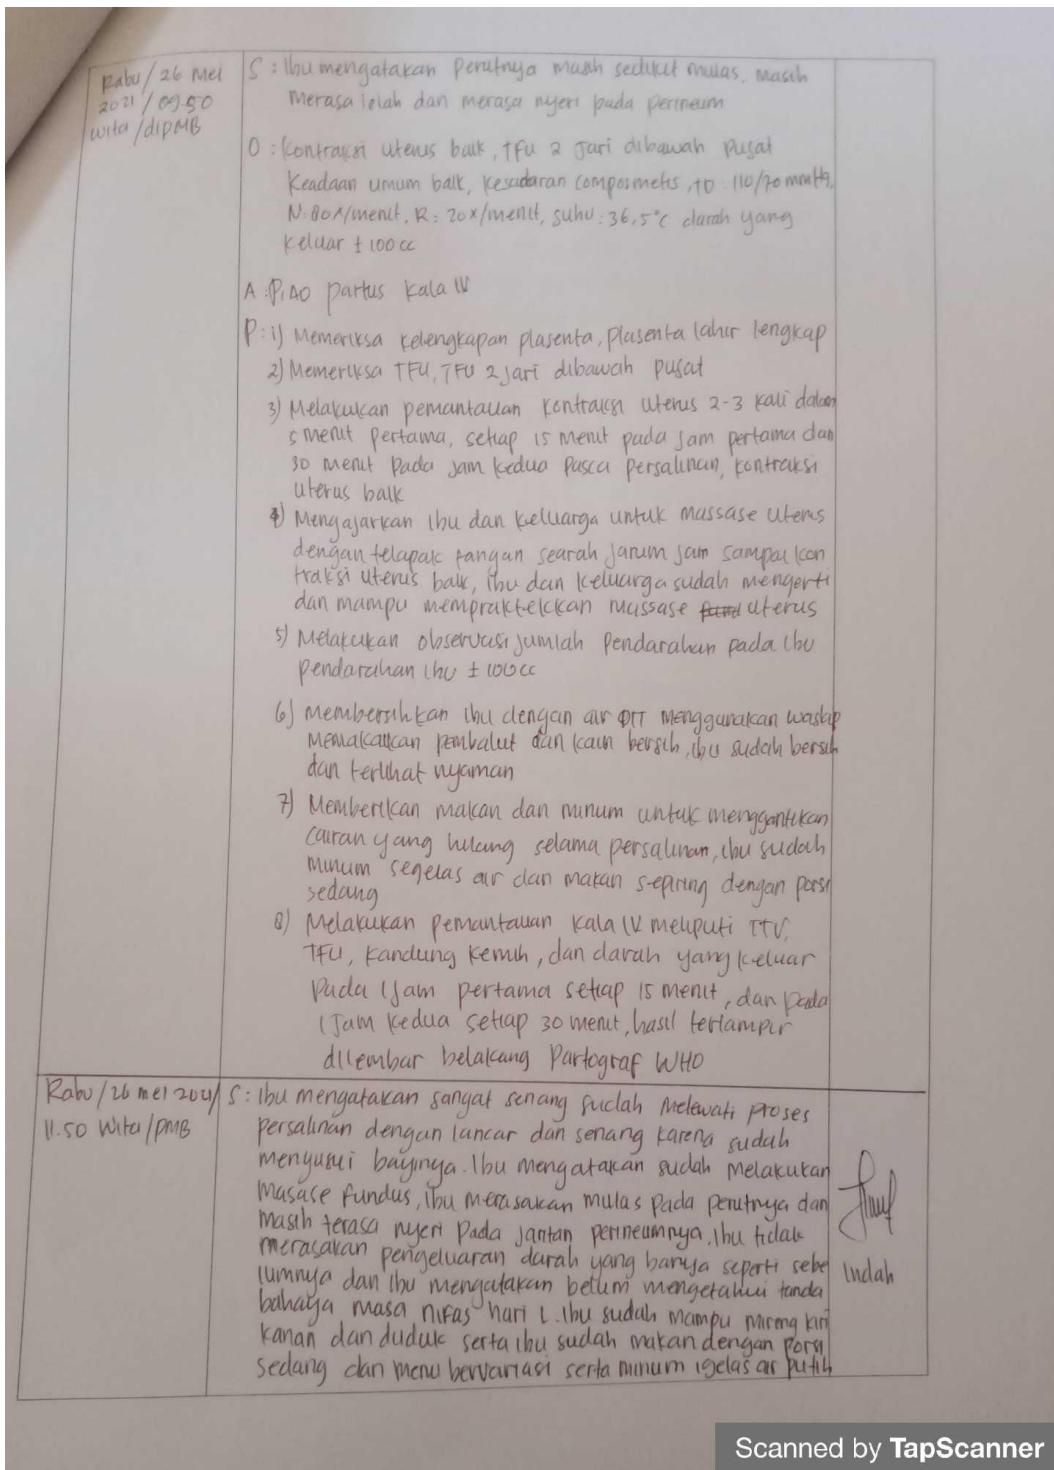 Rabu/26 Mei
2021/09.50
wita/diPMB
S : Ibu mengatakan perutnya masih sedikit mulas, masih
merasa lelah dan merasa nyeri pada perineum
O : Kontraksi uterus baik, TFU 2 Jari dibawah pusat
Keadaan umum baik, kesadaran composmetis, TD : 110/70 mmHg,
N: 80x/menit, R: 20x/menit, suhu: 36,5°C darah yang
keluar ± 100 cc
A : P1A0 partus kala IV
P : 1) Memeriksa kelengkapan plasenta, plasenta lahir lengkap
2) Memeriksa TFU, TFU 2 jari dibawah pusat
3) Melakukan pemantauan kontraksi uterus 2-3 kali dalam
5 menit pertama, setiap 15 menit pada jam pertama dan
30 menit pada jam kedua pasca persalinan, kontraksi
uterus baik
4) Mengajarkan ibu dan keluarga untuk massase uterus
dengan telapak tangan searah jarum jam sampai kon
traksi uterus baik, ibu dan keluarga sudah mengerti
dan mampu mempraktekkan massase uterus
5) Melakukan observasi jumlah pendarahan pada ibu
pendarahan ibu ± 100 cc
6) Membersihkan ibu dengan air DTT menggunakan waslap
memakaikan pembalut dan kain bersih, ibu sudah bersih
dan terlihat nyaman
7) Memberikan makan dan minum untuk menggantikan
cairan yang hilang selama persalinan, ibu sudah
minum segelas air dan makan sepiring dengan porsi
sedang
8) Melakukan pemantauan kala IV meliputi TTV,
TFU, kandung kemih, dan darah yang keluar
pada 1 jam pertama setiap 15 menit, dan pada
1 jam kedua setiap 30 menit, hasil terlampir
dilembar belakang Partograf WHO
Rabu/26 mei 2021/
11.50 Wita/PMB
S : Ibu mengatakan sangat senang sudah melewati proses
persalinan dengan lancar dan senang karena sudah
menyusui bayinya. Ibu mengatakan sudah melakukan
masase fundus, ibu merasakan mulas pada perutnya dan
masih terasa nyeri pada jahitan perineumnya, ibu tidak
merasakan pengeluaran darah yang banya seperti sebe
lumnya dan ibu mengatakan belum mengetahui tanda
bahaya masa nifas hari 1. Ibu sudah mampu miring kiri
kanan dan duduk serta ibu sudah makan dengan porsi
sedang dan menu bervariasi serta minum 1gelas air putih
Indah
Scanned by TapScanner